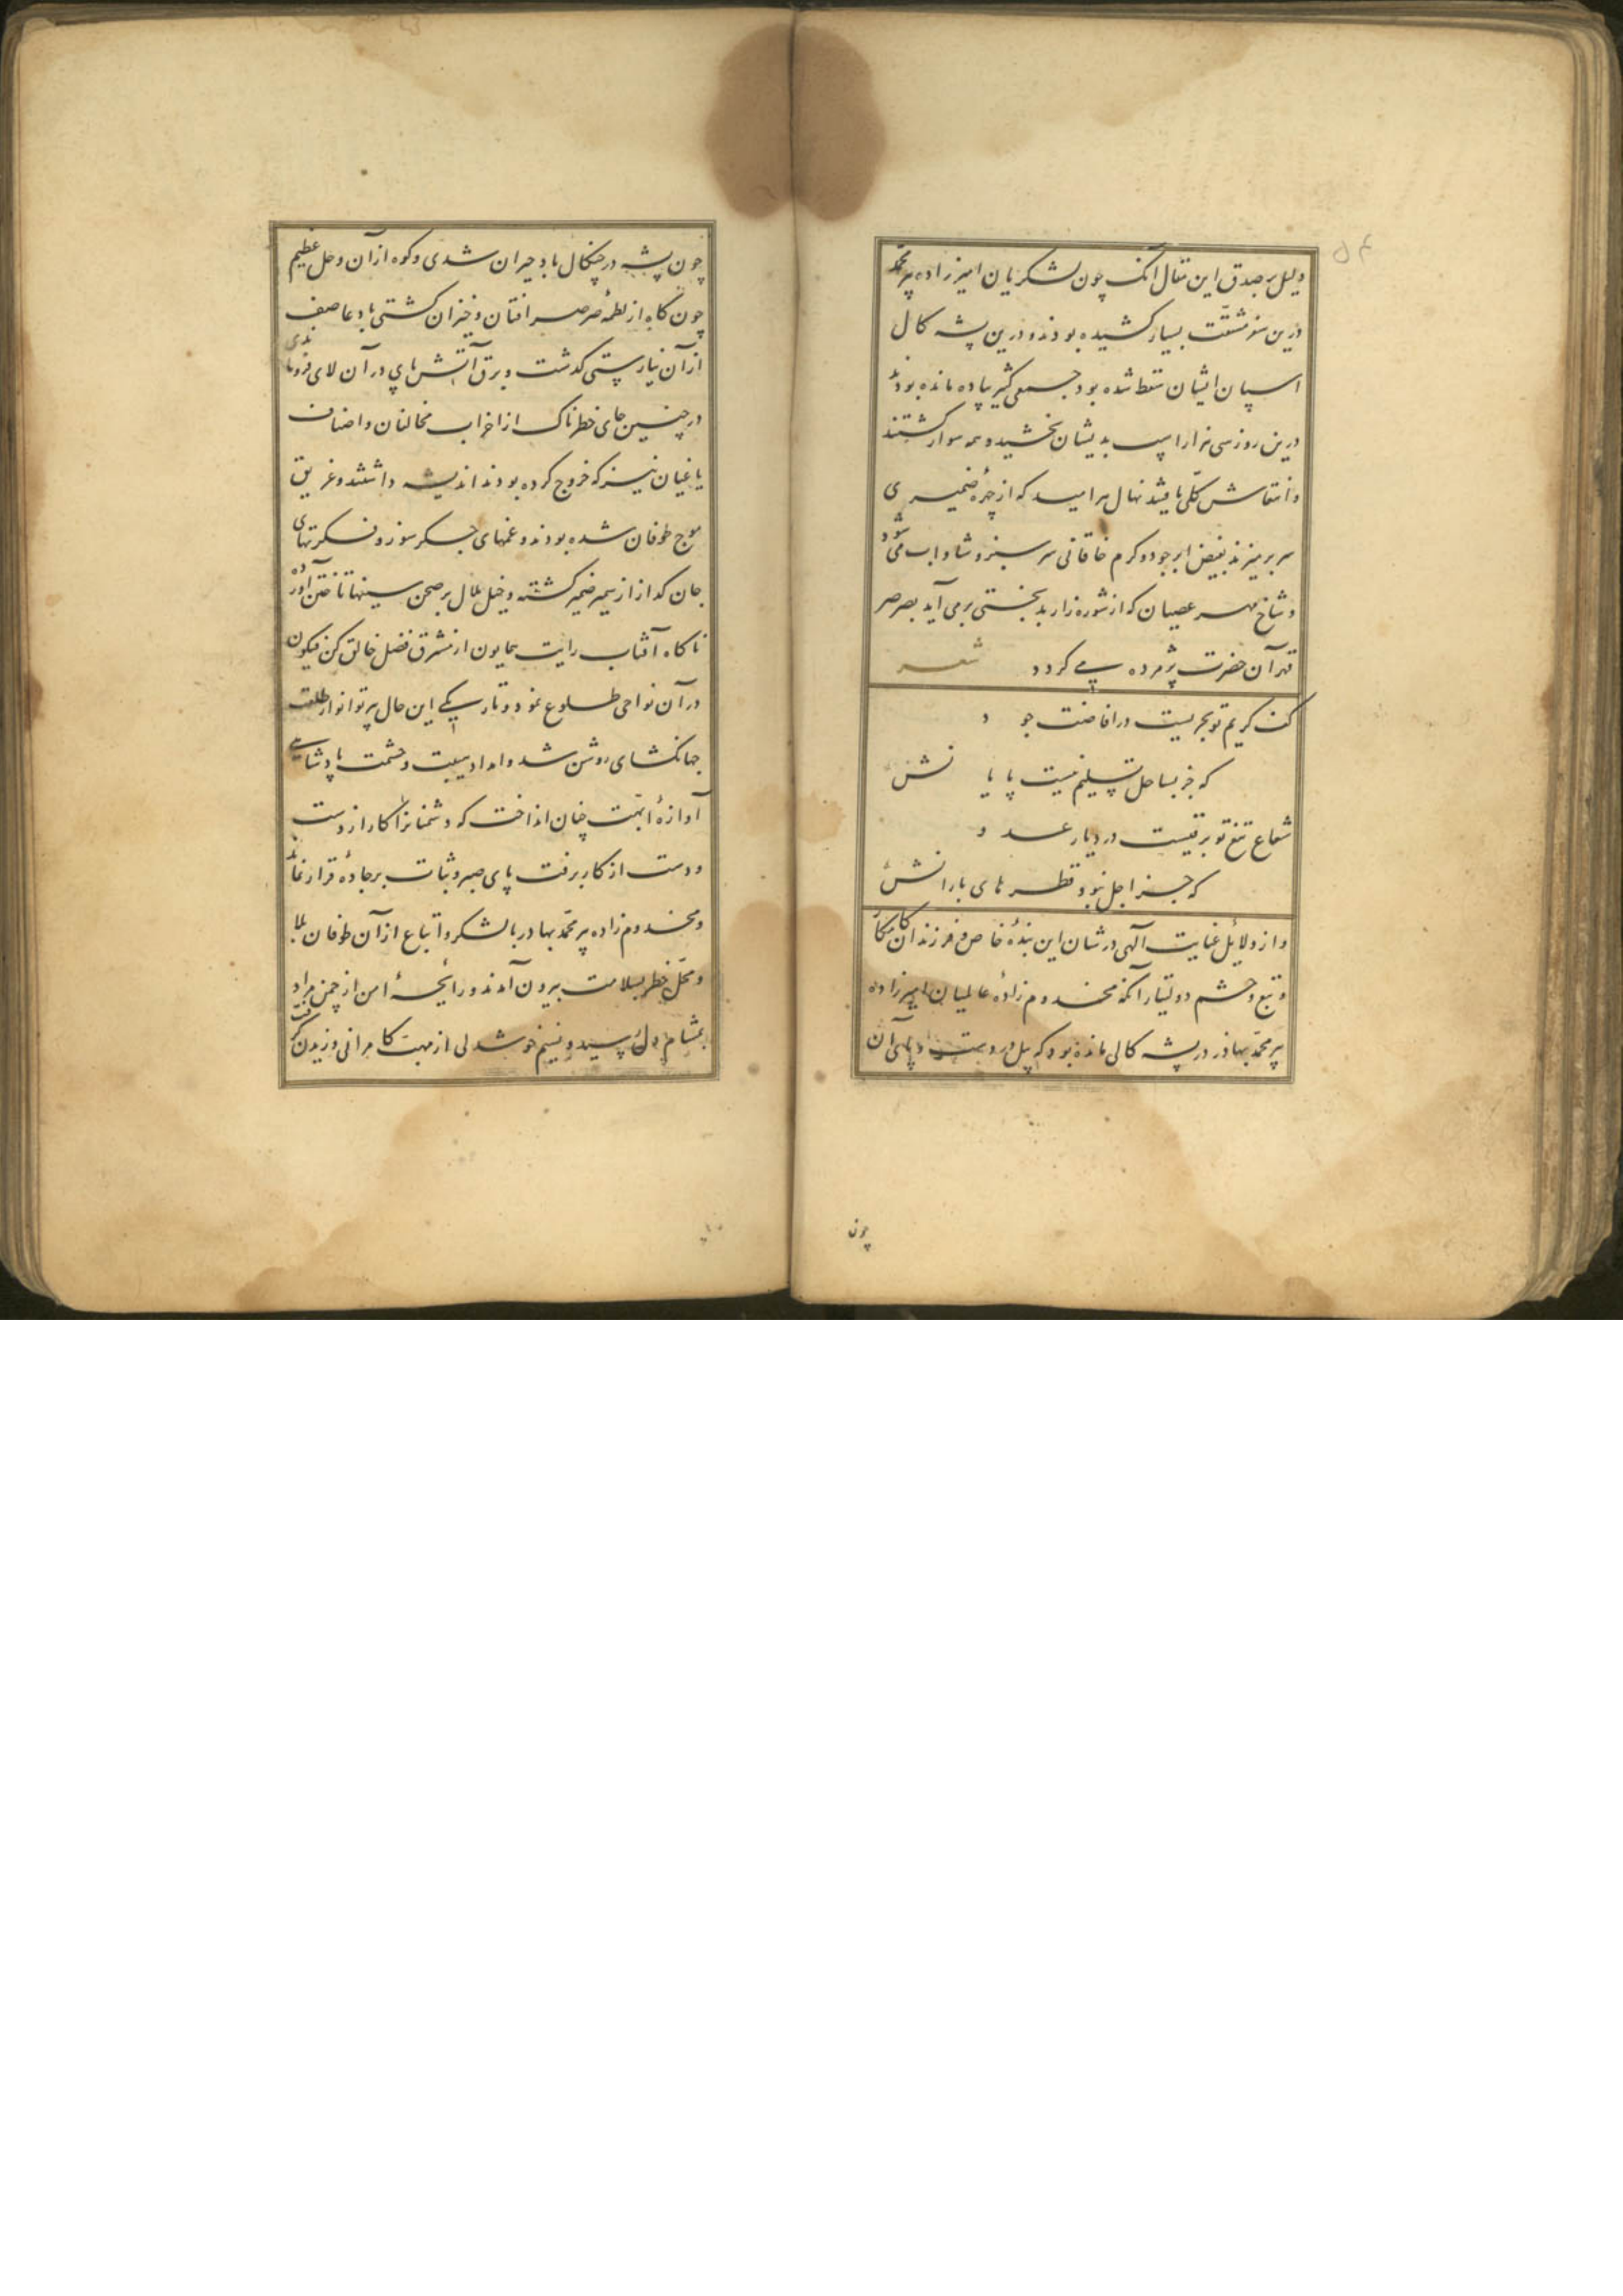 ۵۴
دلیل بر صدق این مقال آنک چون لشکریان امیرزاده پیر محمد
درین سفر مشقّت بسیار کشیده بودند و درین پشه کال
اسپان ایشان سقط شده بود و جمعی کثیر پیاده مانده بودند
درین روز سی هزار اسپ بدیشان بخشید و همه سوار گشتند
و انتعاش کلّی یافتند نهال هر امید که از چمن ضمیری
سر بر میزند بفیض ابر جود و کرم خاقانی سرسبز و شاداب می شود
و شاخ هر عصیان که از شوره زار بدبختی برمی آید بصرصر
قهر آن حضرت پژمرده می کردد شعر
کف کریم تو بحریست در افاضت جود
که جز بساحل تسلیم نیست پایانش
شعاع تیغ تو برقیست در دیار عدو
که جز اجل نبود قطرهای بارانش
و از دلائل عنایت آلهی در شان این بندهٔ خاص و فرزندان کامکار
و تبع و حشم دولتیار آنکه مخدوم زادهٔ عالمیان امیرزاده
پیر محمّد بهادر در پشه کالی مانده بود که پیل در دست و پای آن
چون
چون پشه در چنکال باد حیران شدی و کوه از آن وحل عظیم
چون کاه از لطمهٔ صرصر افتان و خیزان کشتی باد عاصف
از آن نیارستی کذشت و برق آتش پای در آن لای فروماندی
در چنین جای خطرناک از احزاب مخالفان و اصناف
یاغیان نیز که خروج کرده بودند اندیشه داشتند و غریق
موج طوفان شده بودند و غمهای جگرسوز و فکرتهای
جان کداز از ضمیر کشته و خیل ملال بر صحن سینها تاختن آورده
ناکاه آفتاب رایت همایون از مشرق فضل خالق کن فیکون
در آن نواحی طلوع نمود و تاریکی این حال بپرتو انوار طلعت
جهانکشای روشن شد و امداد هیبت و حشمت پادشاهی
آوازهٔ ابّهت چنان انداخت که دشمنانرا کار از دست
و دست از کار برفت پای صبر و ثبات بر جادهٔ قرار نماند
و مخدوم زاده پیر محمّد بهادر با لشکر و اتباع از آن طوفان بلا
و محلّ خطر بسلامت بیرون آمدند و رایحهٔ امن از چمن مراد
بمشام دل رسید و نسیم خوشدلی از مهبّ کامرانی وزیدن کرفت